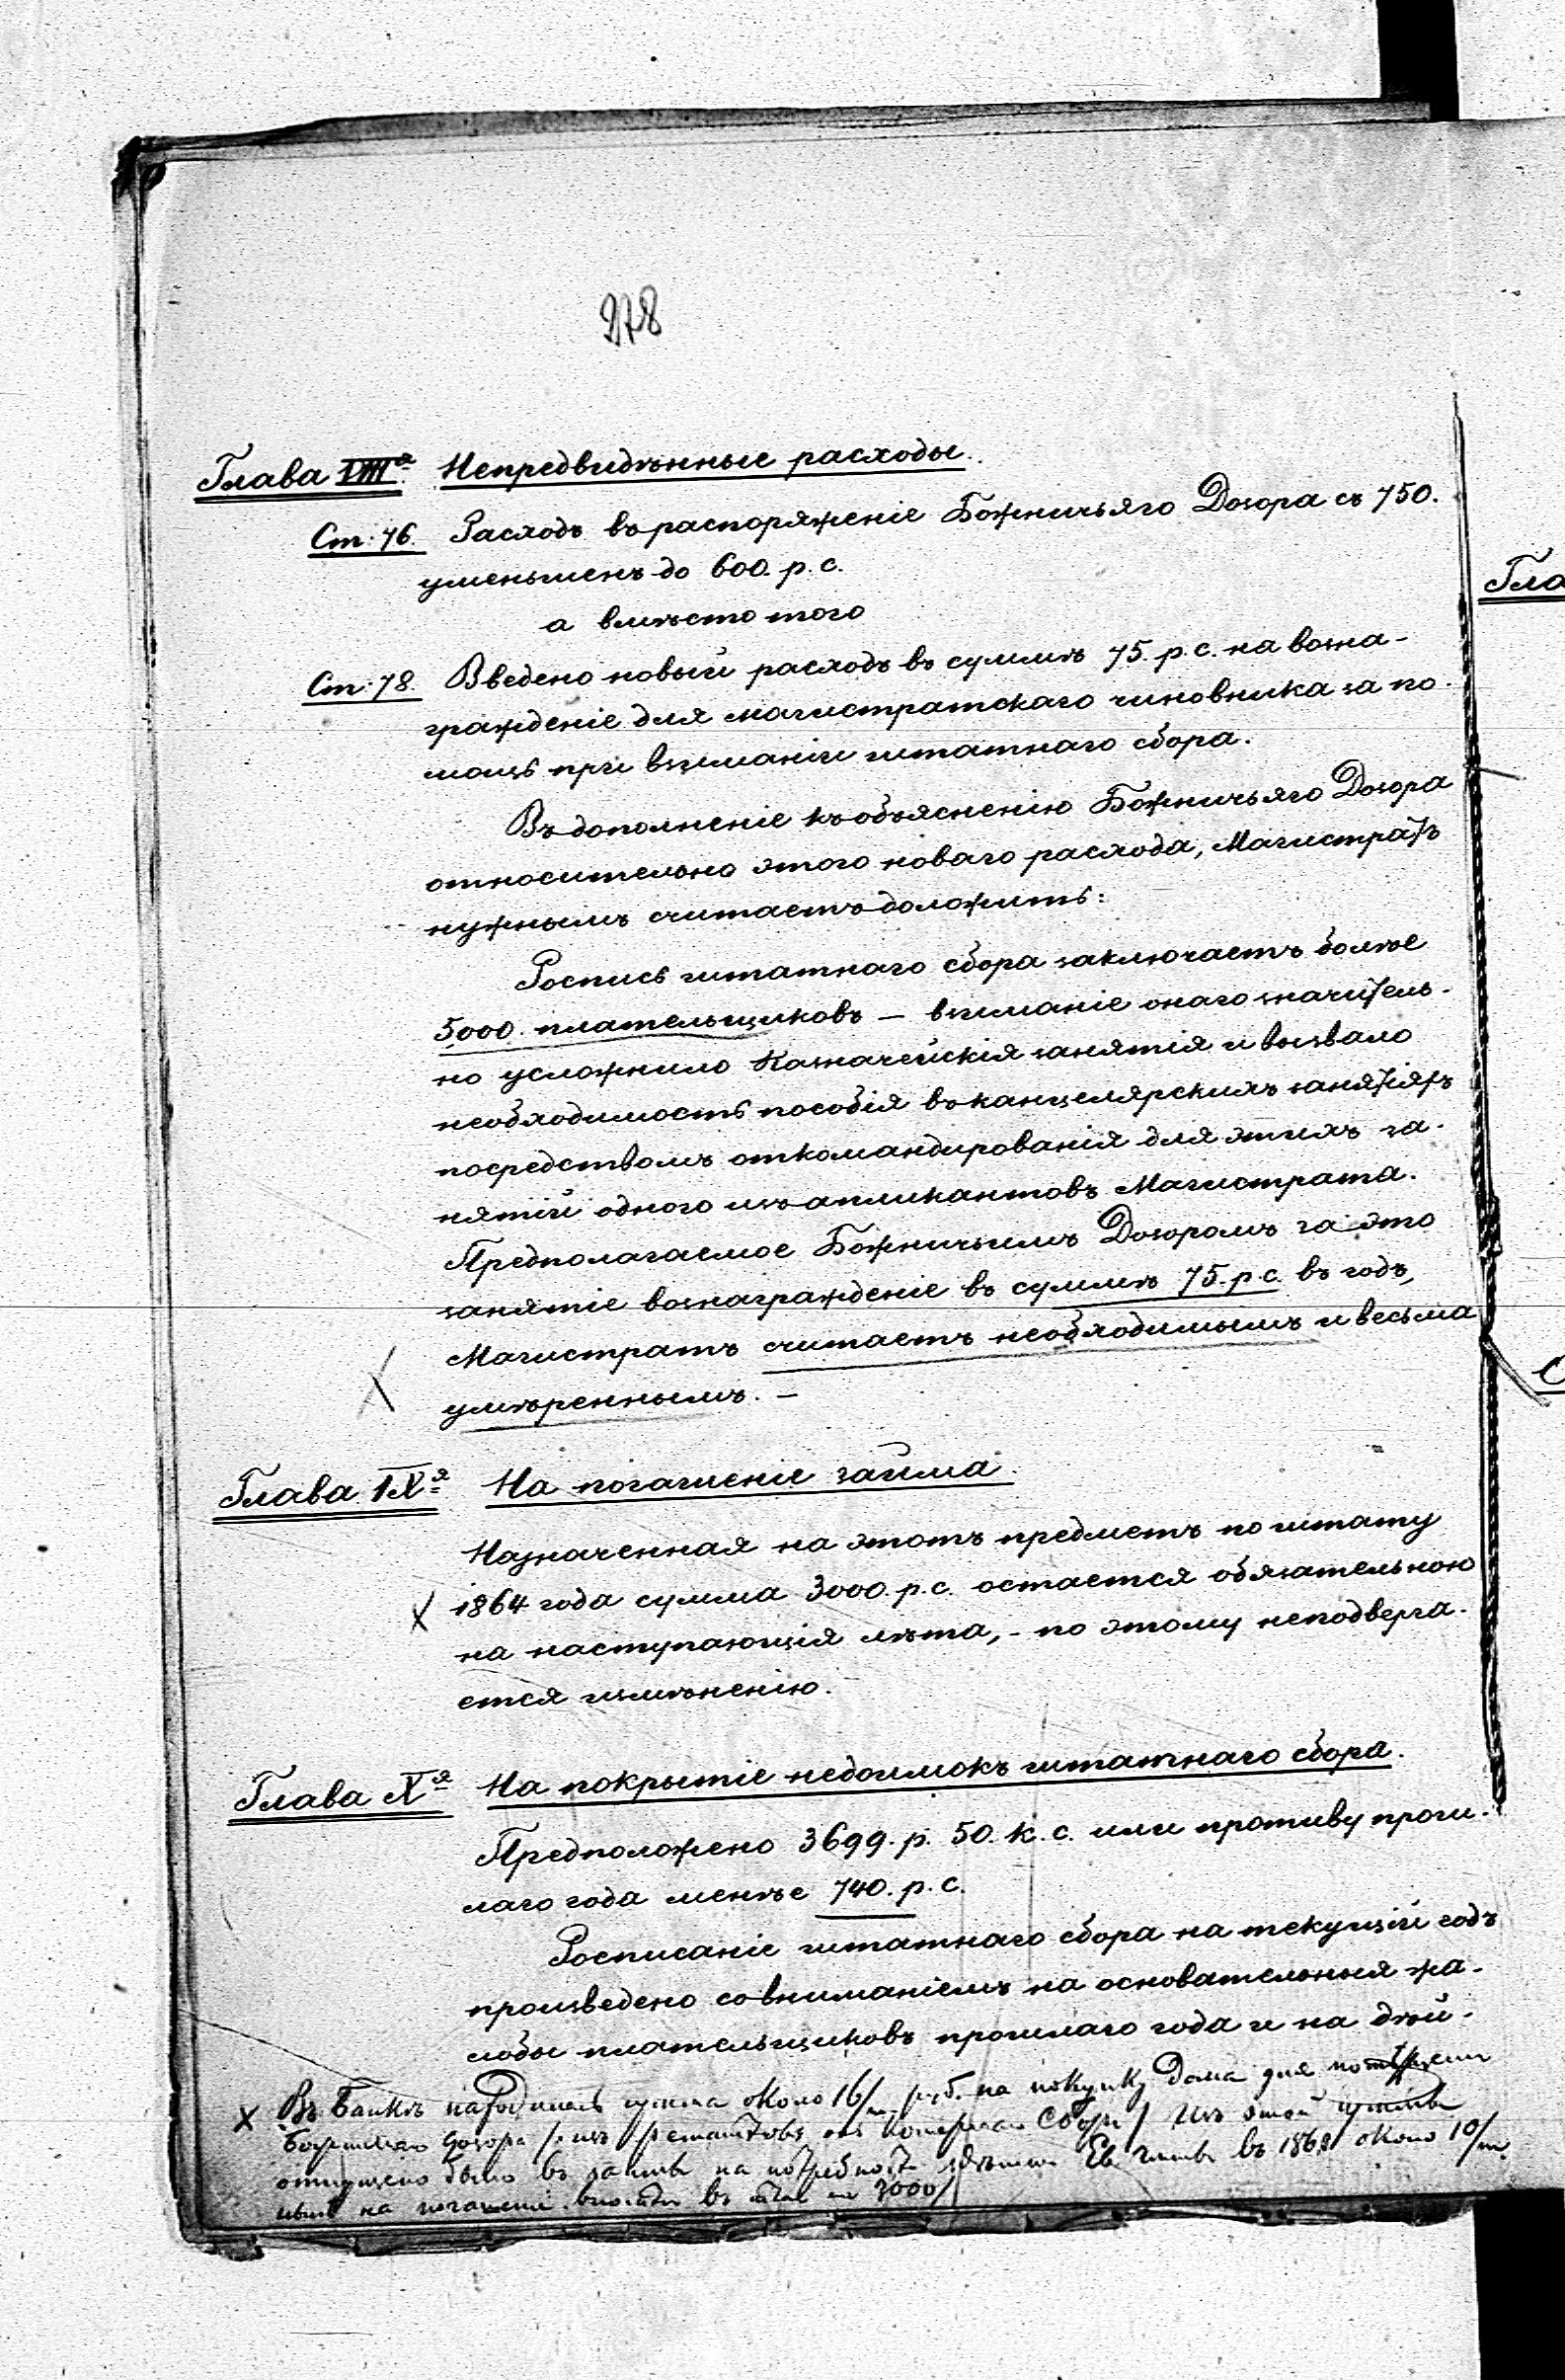 278
Глава VIIIя Непредвидѣнные расходы.
Ст. 76. Расходъ въ распоряженіе Божничьяго Дозора съ 750.
уменьшенъ до 600. р. с.
а вмѣсто того
Ст. 78. Введено новый расходъ въ суммѣ 75. р. с. на возна-
гражденіе для магистратскаго чиновника за по-
мощь при взиманіи штатнаго сбора.
Въ дополненіе къ объясненію Божничьяго Дозора
относительно этого новаго расхода, Магистратъ
нужнымъ считаетъ доложить:
Роспись штатнаго сбора заключаетъ болѣе
5000. плательщиковъ — взиманіе онаго значитель-
но усложнило Казначейскія занятія и вызвало
необходимость пособія въ канцелярскихъ занятіяхъ
посредствомъ откомандированія для этихъ за-
нятій одного изъ апликантовъ Магистрата.
Предполагаемое Божничьимъ Дозоромъ за это
занятіе вознагражденіе въ суммѣ 75. р. с. въ годъ,
Магистратъ считаетъ необходимымъ и весьма
умѣреннымъ. —
Глава IXя На погашеніе займа.
Назначенная на этотъ предметъ по штату
1864 года сумма 3000. р. с. остается обязательною
на наступающія лѣта, - по этому неподверга-
ется измѣненію.
Глава Xя На покрытіе недоимокъ штатнаго сбора.
Предположено 3699. р. 50. к. с. или противу прош-
лаго года менѣе 740. р. с.
Росписаніе штатнаго сбора на текущій годъ
произведено со вниманіемъ на основательныя жа-
лобы плательщиковъ прошлаго года и на дѣй-
Въ Банкѣ сумма около 16/m руб. на покупку Дома для
дозора изъ этой
отпущено было въ на въ 1862 около 10/m
на въ 3000
Гла
С